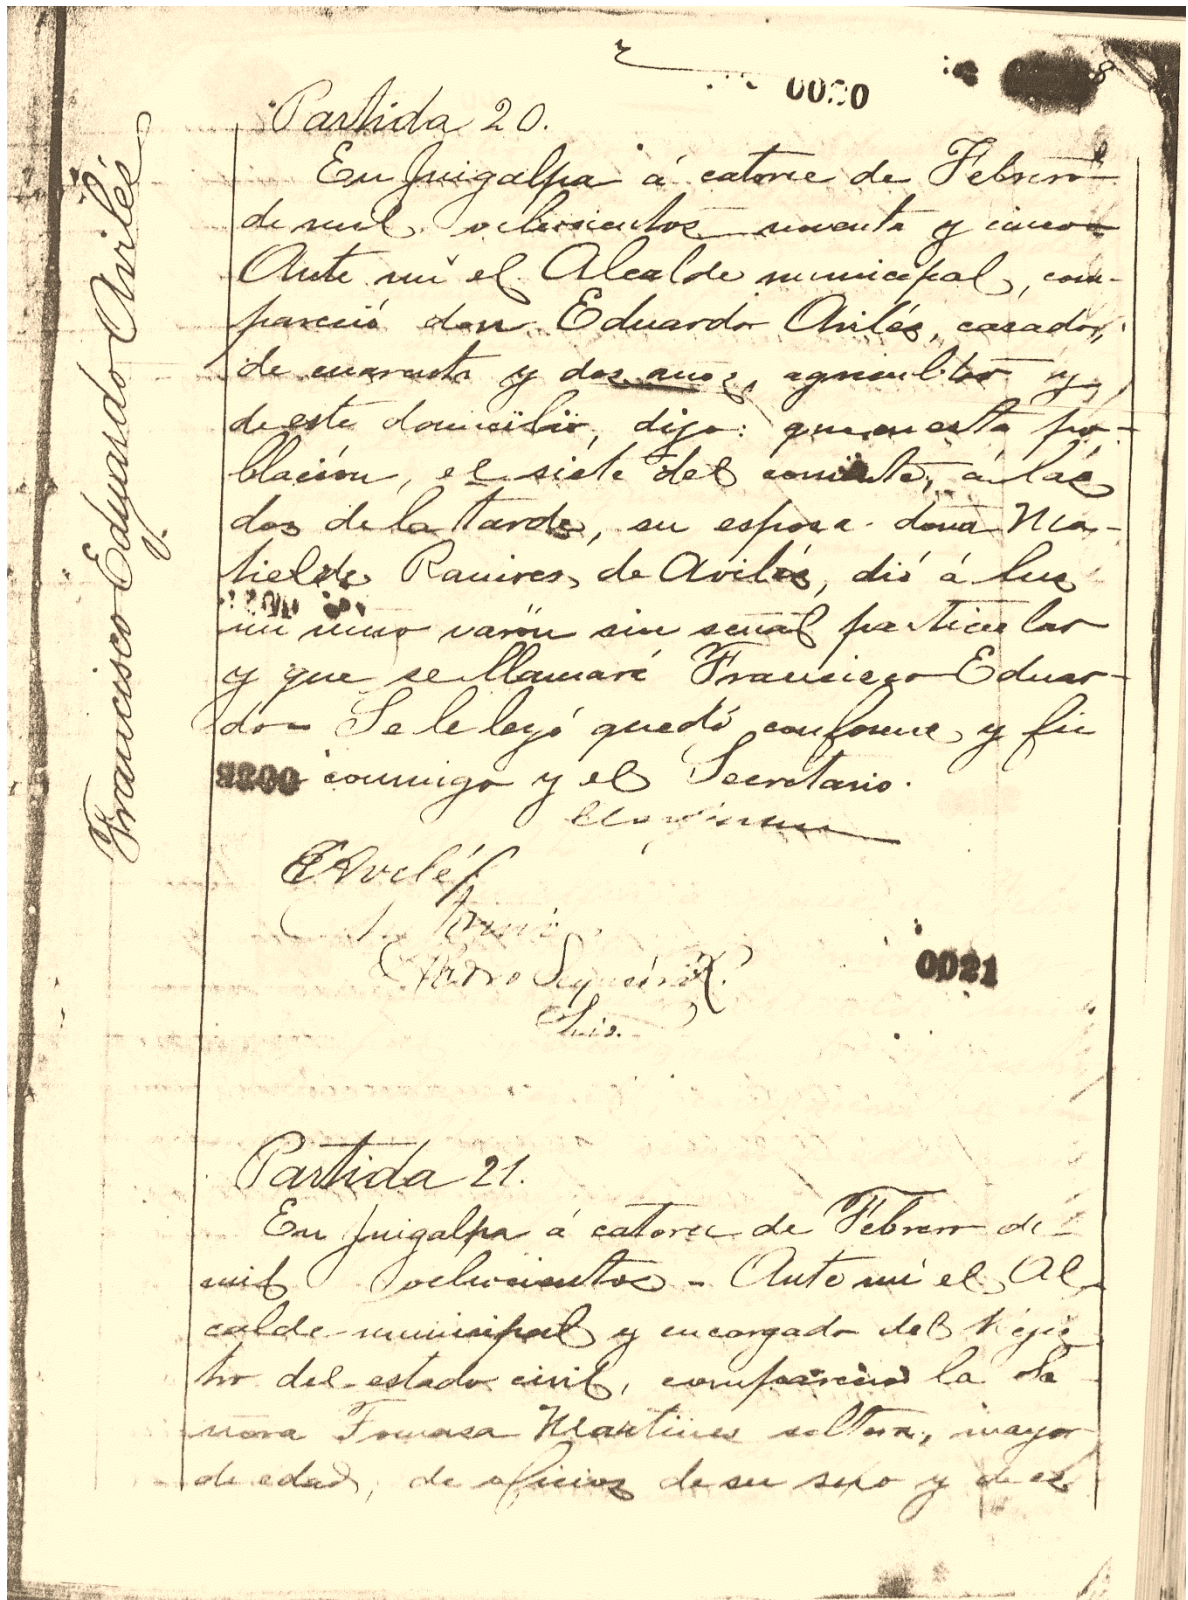 0020
8
Francisco Eduardo Avilés
Partida 20.
En Juigalpa á catorce de Febrero
de mil ochocientos noventa y cinco
Ante mi el Alcalde municipal, com-
pareció don Eduardo Avilés, casado,
de cuarenta y dos años, agricultor y
de este domicilio, dijo: que en esta po-
blación, el siete del corriente, á las
dos de la tarde, su esposa doña Ma-
tilde Ramires de Avilés, dió á luz
un niño varón sin señal particular
y que se llamará Francisco Eduar-
do- Se le leyó quedó conforme y fir
conmigo y el Secretario.
EAvilés
Pedro Sequeira
Srio.
0021
Partida 21.
En Juigalpa á catorce de Febrero de
mil ochocientos - Ante mi el Al-
calde municipal y encargado del Rejis
tro del estado civil, compareció la Se
ñora Tomasa Martines soltera, mayor
de edad, de oficios de su sexo y de es